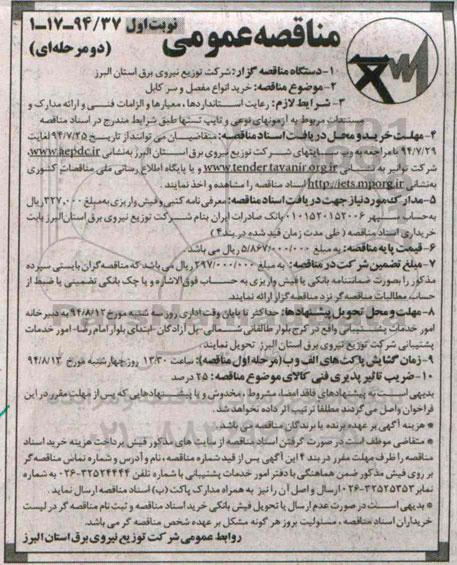 نوبت اول ۹۴/۳۷-۱۷-۱
مناقصه عمومی
(دو مرحله‌ای)
۱- دستگاه مناقصه گزار: شرکت توزیع نیروی برق استان البرز
۲- موضوع مناقصه: خرید انواع مفصل و سر کابل
۳- شرایط لازم: رعایت استانداردها، معیارها و الزامات فنی و ارائه مدارک و
مستندات مربوط به آزمونهای نوعی و تایپ تستها طبق شرایط مندرج در اسناد مناقصه
۴- مهلت خرید و محل دریافت اسناد مناقصه: متقاضیان می توانند از تاریخ ۹۴/۷/۲۵ لغایت
۹۴/۷/۲۹ با مراجعه به وب سایتهای شرکت توزیع نیروی برق استان البرز به‌نشانی www.aepdc.ir،
شرکت توانیر به نشانی www.tender.tavanir.org.ir و یا پایگاه اطلاع رسانی ملی مناقصات کشوری
به‌نشانی http://iets.mporg.ir اسناد مناقصه را مشاهده و اخذ نمایند.
۵- مدارک مورد نیاز جهت دریافت اسناد مناقصه: معرفی نامه کتبی و فیش واریزی به‌مبلغ ۳۲۷,۰۰۰ ریال
به‌حساب سپهر ۰۱۰۱۵۲۰۱۵۲۰۰۶ بانک صادرات ایران بنام شرکت توزیع نیروی برق استان البرز بابت
خریداری اسناد مناقصه (طی مدت زمان قید شده در بند ۴)
۶- قیمت پایه مناقصه: به مبلغ ۵/۸۶۷/۰۰۰/۰۰۰ ریال می باشد
۷- مبلغ تضمین شرکت در مناقصه: به مبلغ ۲۹۷/۰۰۰/۰۰۰ ریال می باشد که مناقصه‌گران بایستی سپرده
مذکور را بصورت ضمانتنامه بانکی یا فیش واریزی به حساب فوق‌الاشاره و یا چک بانکی تضمینی یا ضبط از
حساب مطالبات مناقصه گر نزد مناقصه گزار ارائه نمایند.
۸- مهلت و محل تحویل پیشنهادها: حداکثر تا پایان وقت اداری روز سه شنبه مورخ ۹۴/۸/۱۲ به دبیرخانه
امور خدمات پشتیبانی واقع در کرج بلوار طالقانی شمالی-پل آزادگان-ابتدای بلوار امام رضا- امور خدمات
پشتیبانی شرکت توزیع نیروی برق استان البرز تحویل نمایند.
۹- زمان گشایش پاکت های الف و ب (مرحله اول مناقصه): ساعت ۱۳:۳۰ روز چهارشنبه مورخ ۹۴/۸/۱۳
۱۰- ضریب تاثیر پذیری فنی کالای موضوع مناقصه: ۲۵ درصد
بدیهی است به پیشنهادهای فاقد امضاء، مشروط، مخدوش و یا پیشنهادهایی که پس از مهلت مقرر در این
فراخوان واصل می گردند مطلقا ترتیب اثر داده نخواهد شد.
* هزینه آگهی بر عهده برنده یا برندگان مناقصه می باشد.
* متقاضی موظف است در صورت گرفتن اسناد مناقصه از سایت های مذکور فیش پرداخت هزینه خرید اسناد
مناقصه را ظرف مهلت مقرر در بند ۴ این آگهی پس از قید شماره مناقصه، نام و آدرس و شماره تماس مناقصه گر
بر روی فیش مذکور ضمن هماهنگی با دفتر امور خدمات پشتیبانی با شماره تلفن ۳۲۵۲۴۴۴۴-۰۲۶ به شماره
نمابر ۳۲۵۲۵۳۵۳-۰۲۶ ارسال و اصل آن را نیز به همراه مدارک پاکت (ب) اسناد مناقصه ارسال نماید.
* بدیهی است در صورت عدم ارسال یا تحویل فیش بانکی خرید اسناد مناقصه و ثبت نام مناقصه گر در لیست
خریداران اسناد مناقصه، مسئولیت بروز هر گونه مشکل بر عهده شخص مناقصه گر می باشد.
روابط عمومی شرکت توزیع نیروی برق استان البرز